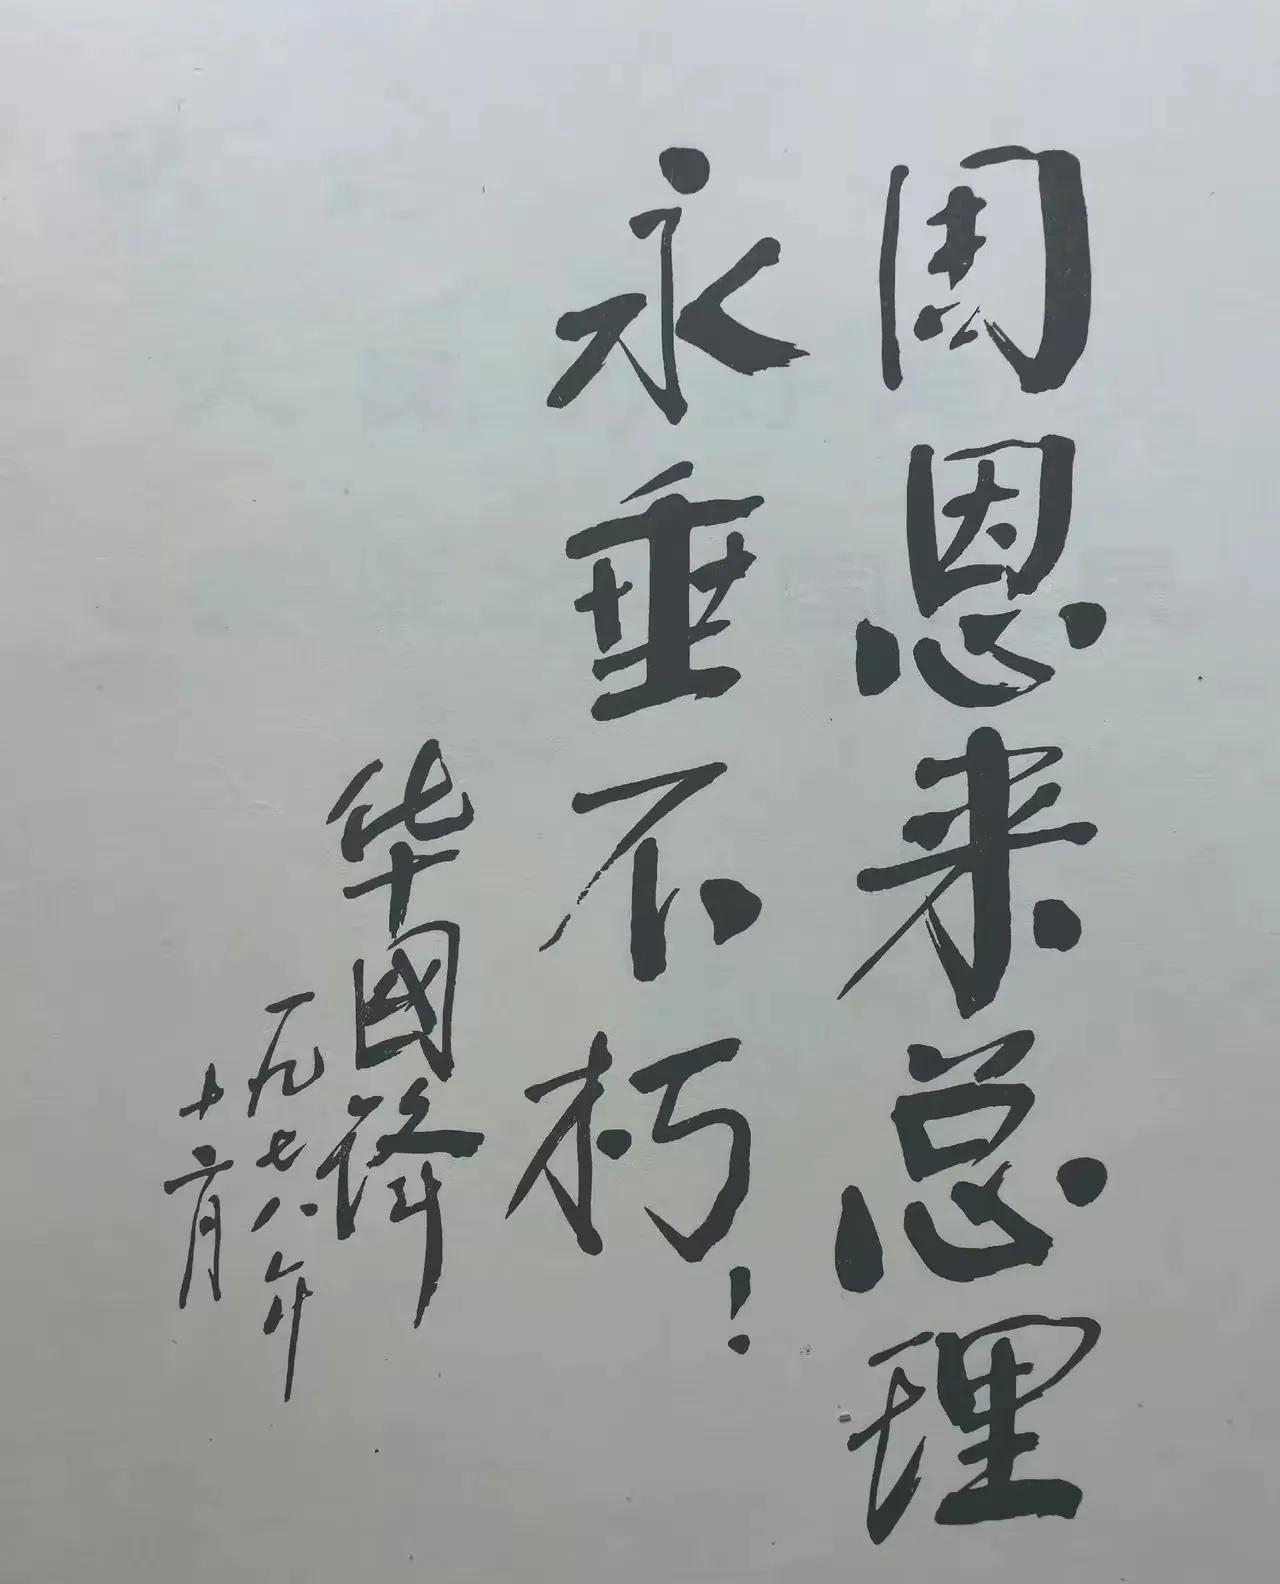 周恩来总理
永垂不朽！
华國锋
一九七八年
十二月